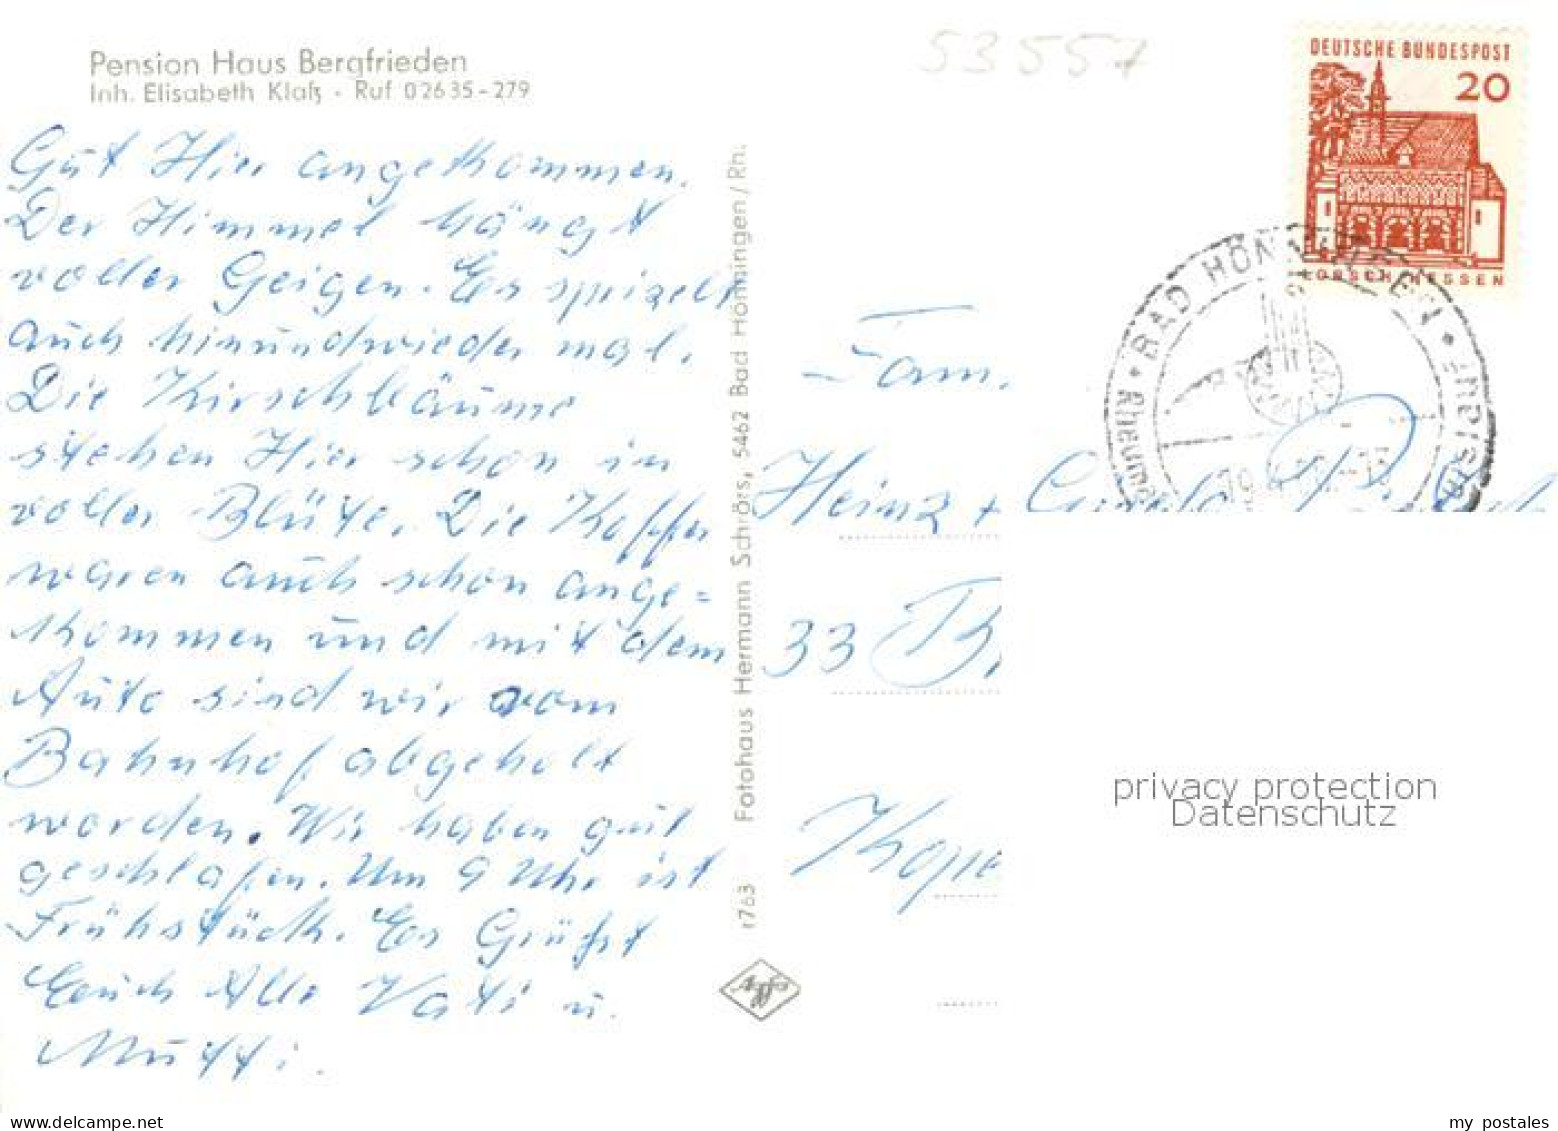 Pension Haus Bergfrieden
Inh. Elisabeth Klaß · Ruf 02635-279
53557
Gut Hier angekommen.
Der Himmel hängt
voller Geigen. Es spritzelt
auch hinundwieder mal.
Die Kirschbäume
stehen Hier schon in
voller Blüte. Die Koffer
waren auch schon ange=
kommen und mit dem
Auto sind wir vom
Bahnhof abgeholt
worden. Wir haben gut
geschlafen. Um 9 Uhr ist
Frühstück. Es Grüßt
Euch Alle Vati u.
Mutti.
r763 Fotohaus Hermann Schrörs, 5462 Bad Hönningen/Rh.
Agfa
DEUTSCHE BUNDESPOST
20
LORSCH/HESSEN
BAD HÖNNINGEN
Fam.
Heinz +
33 B
Kope
privacy protection
Datenschutz
my postales